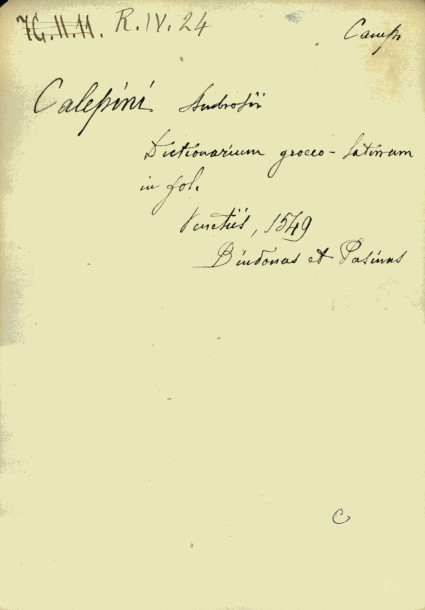 7G.II.11. R.IV.24
Camp.
Calepini Ambrosii
Dictionarium groeco-latinum
in fol.
Venetiis, 1549
Bindonus et Pasinus
C